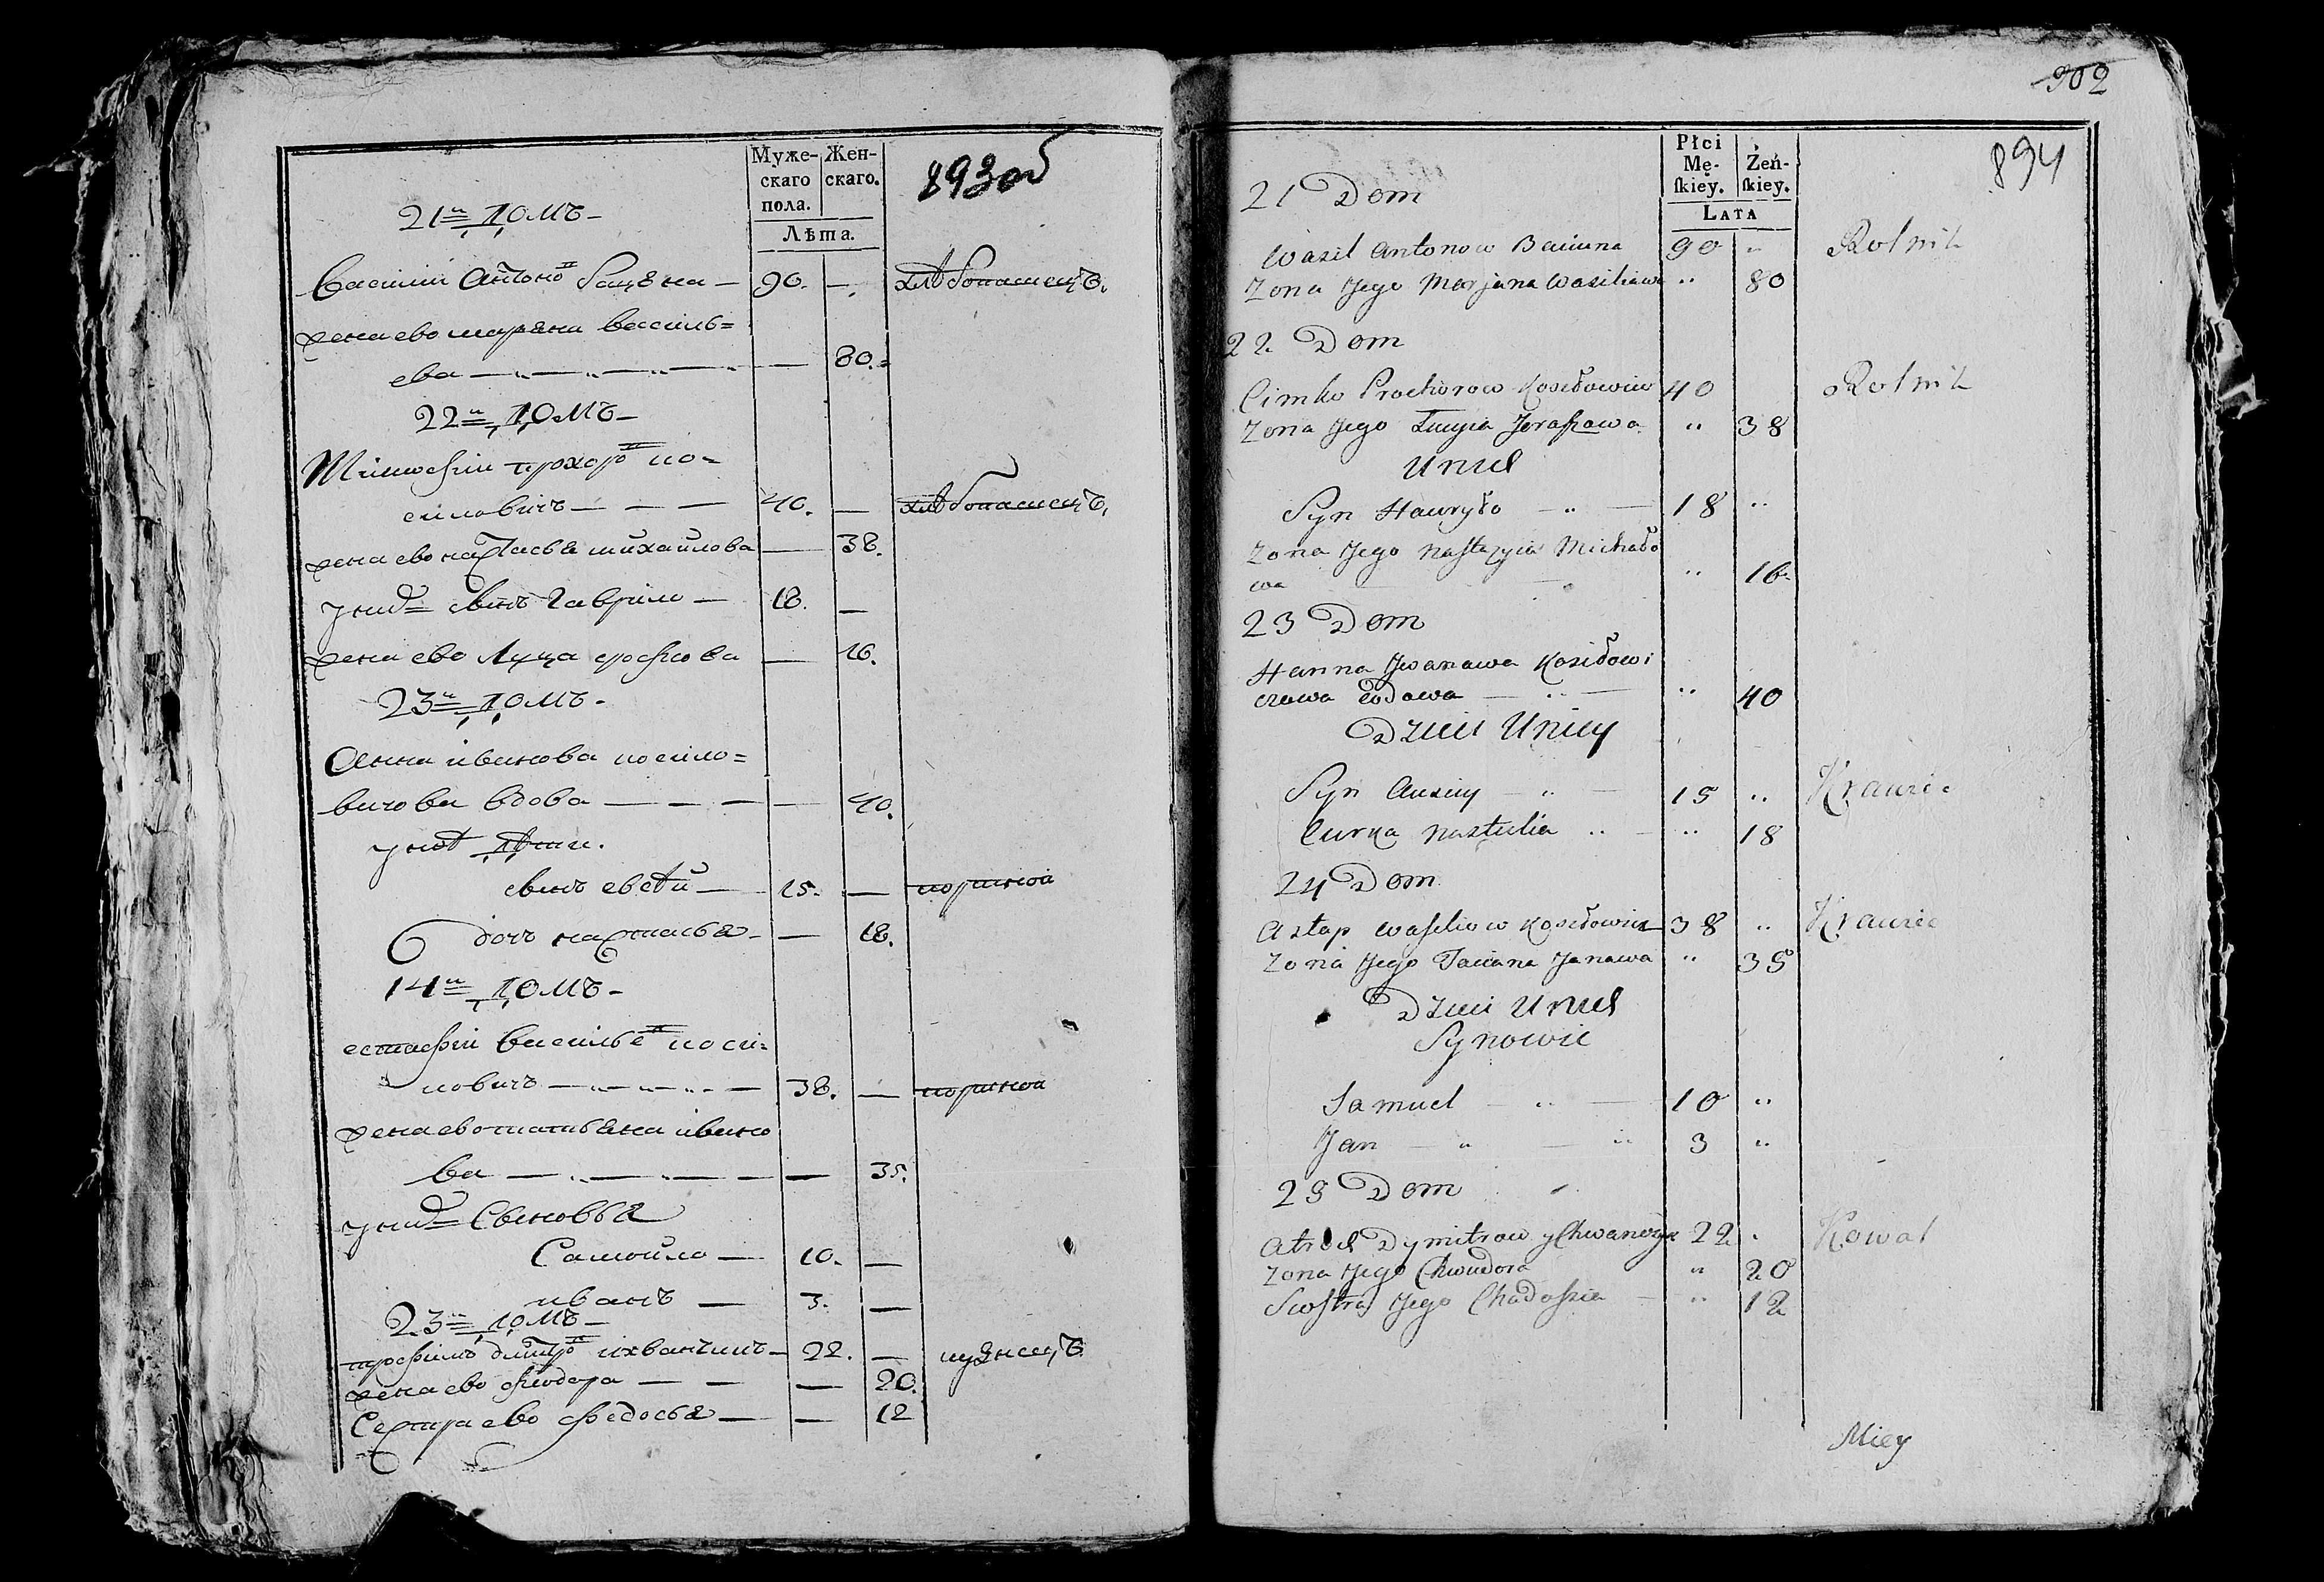 Муже-
скаго
пола.
Жен-
скаго.
Лѣта.
893 об
21й домъ
василій Антоно
90. —
хлѣбопашецъ
жена ево марьяна василь=
ева — 80.
22й домъ
Тимофій прохоро ко=
силовичъ — 40. — хлѣбопашецъ
жена ево настасья михайлова — 38.
у них сынъ Гаврило — 18. —
жена ево Луца — 16.
23й домъ
Анна иванова косило=
вичова вдова — 40.
у ней дѣти
сынъ евсѣй — 15. —
дочь настасья — 18.
14й домъ
естафій василье коси=
ловичъ — 38. —
жена ево татьяна ивано
ва — 35.
у них Сыновья
Самойло — 10. —
иванъ — 3. —
23й домъ
трофимъ дмитро ихванчикъ — 22. — кузнецъ
жена ево фіодора — 20.
Сестра ево федосья — 12
902
894
Płci
Mę-
skiey.
Żeń-
skiey.
LATA
21 Dom
Wasil Antonow 90 " Rolnik
Zona Jego Marjana Wasiliawa " 80
22 Dom
Cimko Prochorow Kosiłowicz 40 Rolnik
Zona Jego Łucyia Jerafiawa " 38
Unich
Syn Hauryło — " — 18 "
Zona Jego Nastazyia Michało
wa " 16
23 Dom
Hanna Jwanawa Kosiłowi
czowa wdowa — " — " 40
Dzieci Unicy
Syn Ausiey — " — 15 " Krawiec
Curka Nastulia " — " 18
24 Dom
Astap Wasiliow Kosiłowicz 38 " Krawiec
Zona Jego Taciana Janawa " 35
Dzieci Unich
Synowie
Samuel — " — 10 "
Jan — " — " 3 "
25 Dom
Dymitrow 22 " Kowal
Zona Jego Chwiedora " 20
Siostra Jego Chadossia — " 12
Miey